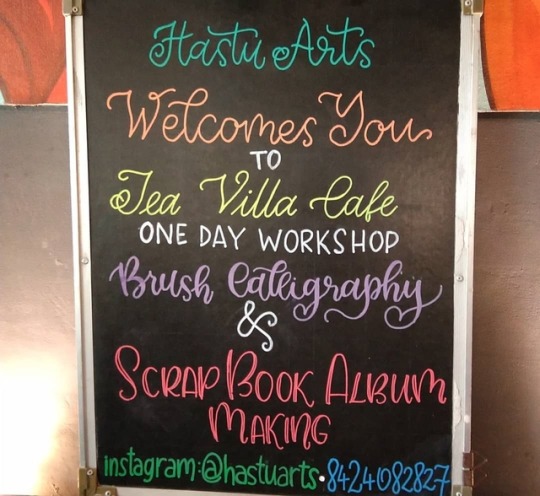 Hastu Arts
Welcomes You
TO
Tea Villa Cafe
ONE DAY WORKSHOP
Brush Calligraphy
&
SCRAP BOOK ALBUM
MAKING
instagram:@hastuarts.8424082827